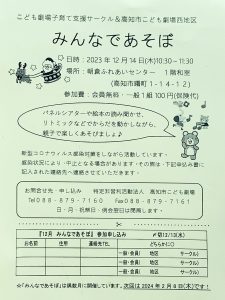 こども劇場子育て支援サークル&高知市こども劇場西地区
みんなであそぼ
日時:2023年12月14日(木)10:30~11:30
場所:朝倉ふれあいセンター 1階和室
(高知市曙町1-14-12)
参加費:会員無料・一般1組100円(保険代)
パネルシアターや絵本の読み聞かせ、
リトミックなどでからだを動かしながら、
親子で楽しくあそびましょ♪
新型コロナウィルス感染対策をしながら活動しています。
感染状況により、中止となる場合があります。その際は、下記申込み書に
記入された連絡先へ連絡させていただきます。
お問合せ先・申し込み 特定非営利活動法人 高知市こども劇場
Tel 088-879-7160 Fax 088-879-7161
日・月・祝祭日・例会翌日は閉局します
『12月 みんなであそぼ』参加申し込み 〆切12/13(水)
お名前 生年 連絡先TEL どちらかに○
一般・会員( 地区 サークル)
一般・会員( 地区 サークル)
一般・会員( 地区 サークル)
☆『みんなであそぼ』は偶数月に開催しています。次回は2024年2月8日(木)です!